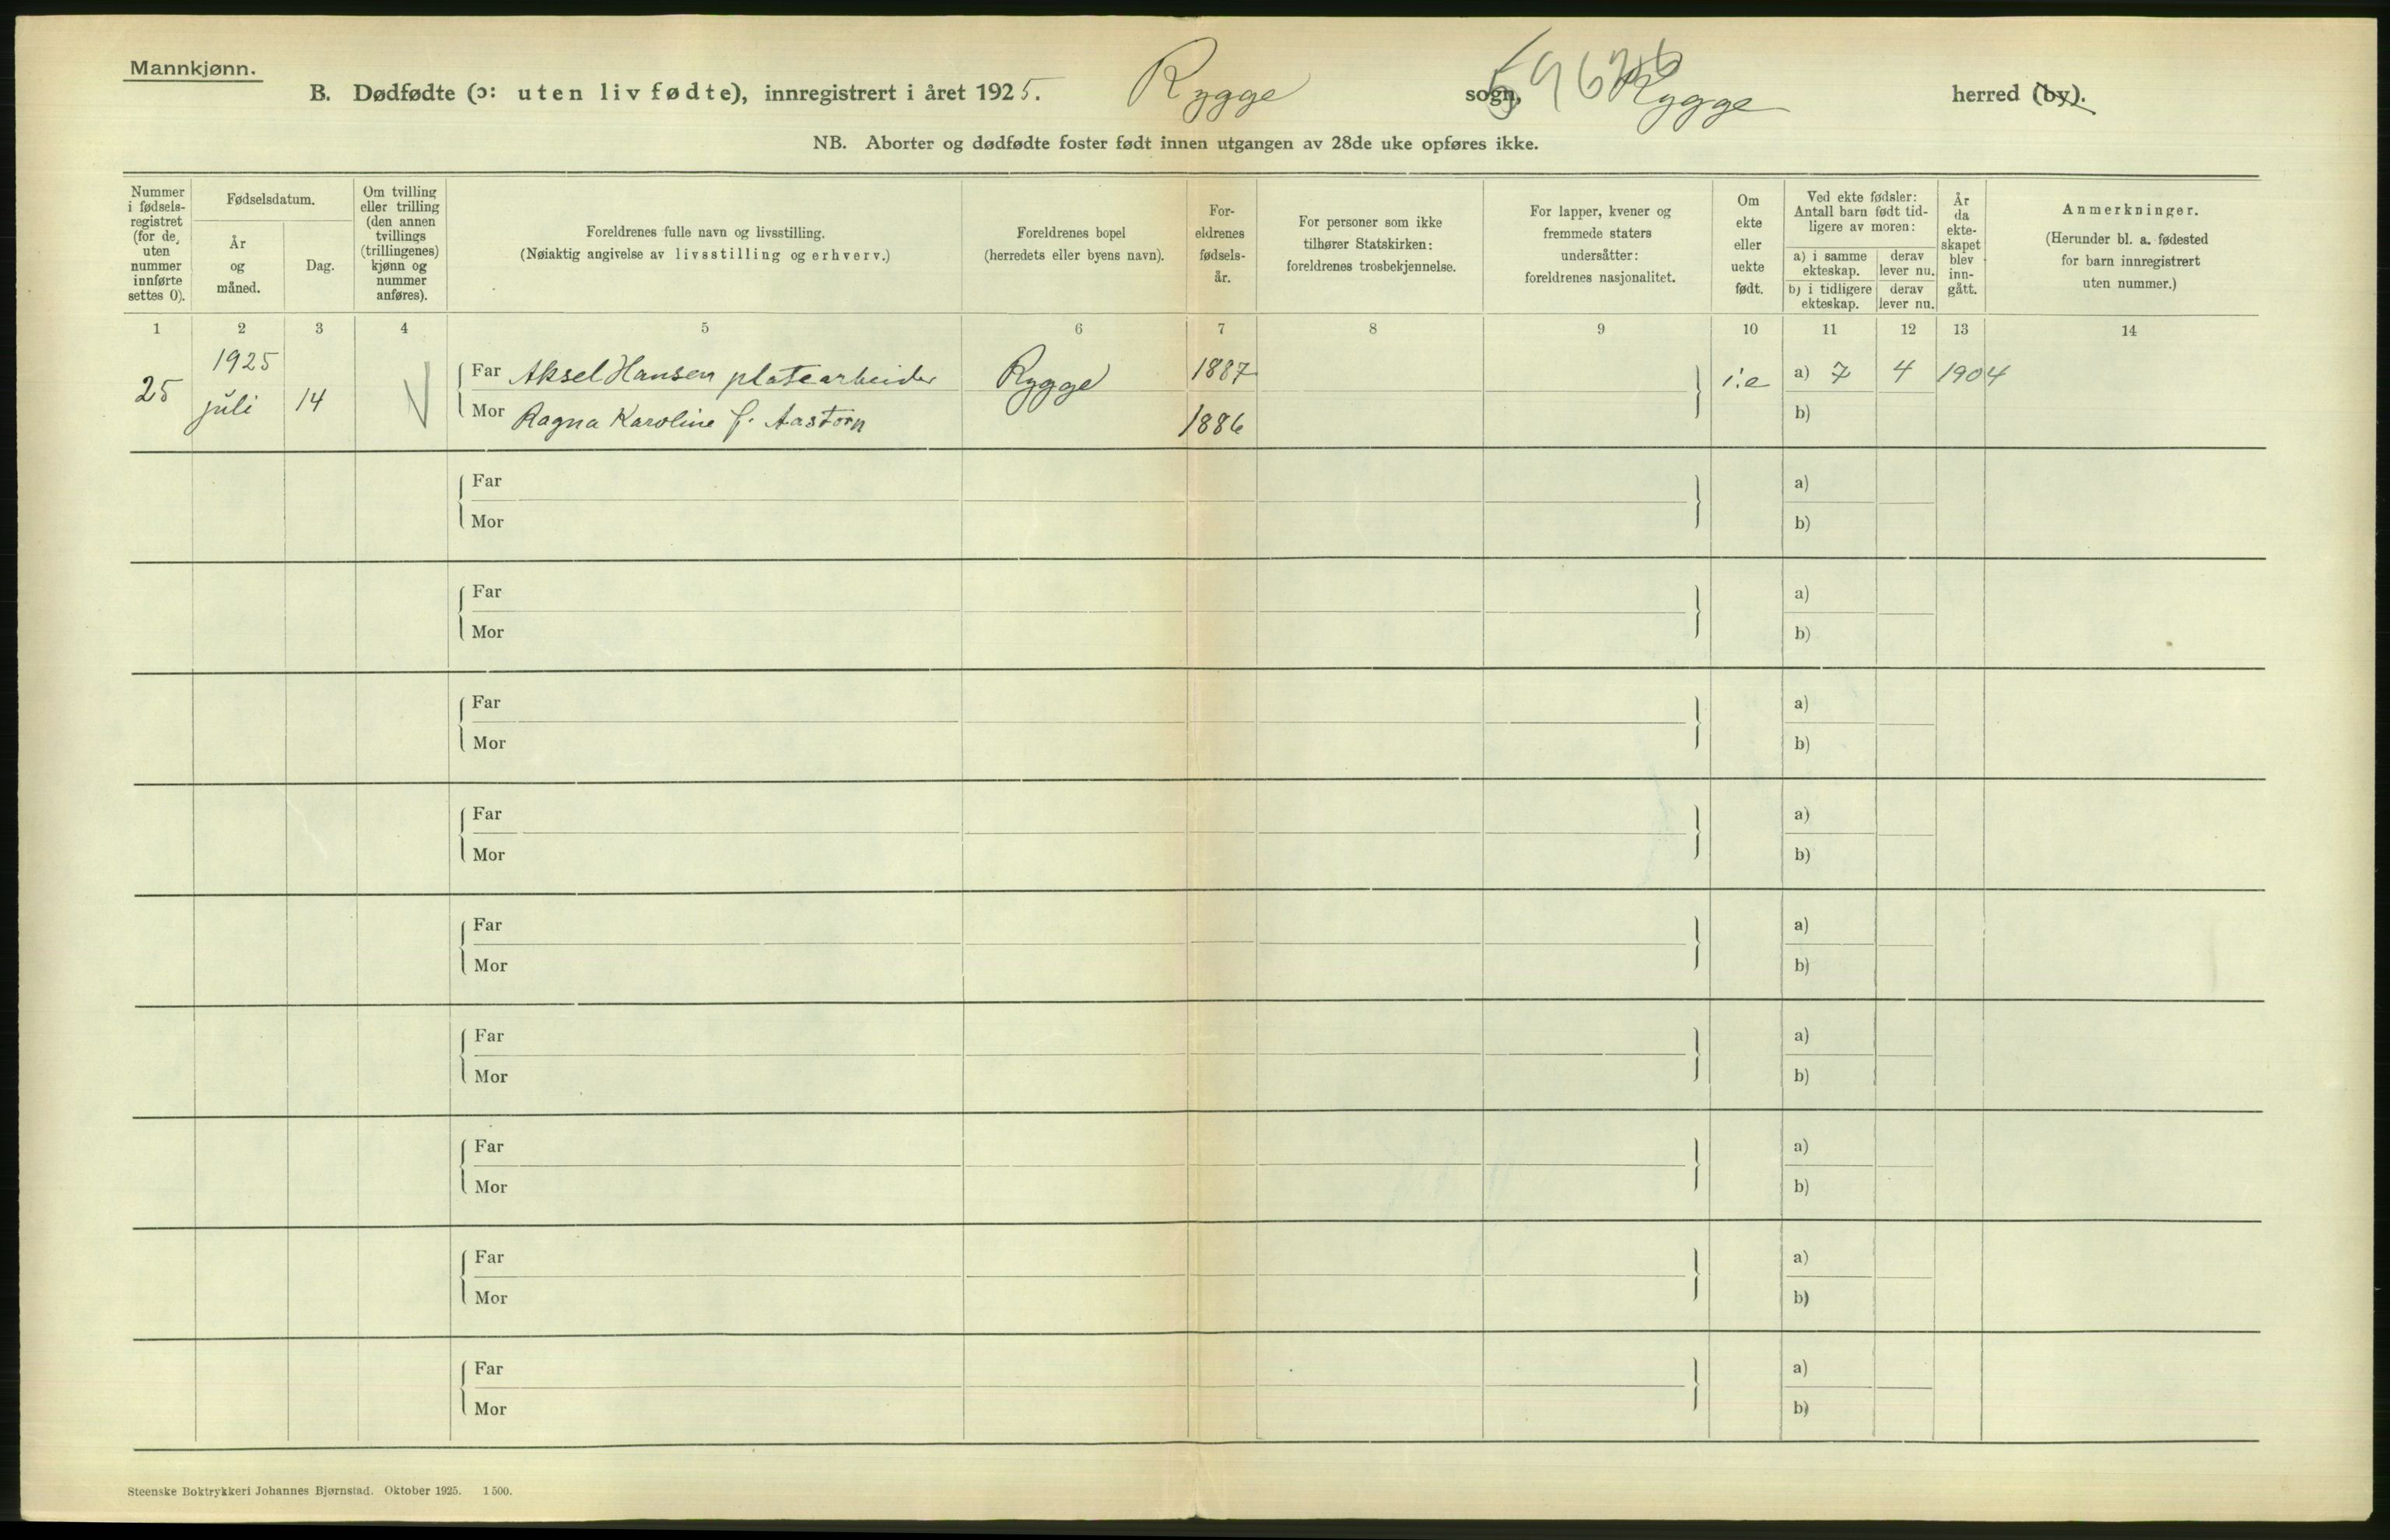 Mannkjønn.
B. Dødfødte (ɔ: uten liv fødte), innregistrert i året 1925. Rygge sogn, Rygge herred (by).
NB. Aborter og dødfødte foster født innen utgangen av 28de uke opføres ikke.
Nummer i fødsels-registret (for de uten nummer innførte settes 0).
Fødselsdatum.
År og måned.
Dag.
Om tvilling eller trilling (den annen tvillings (trillingenes) kjønn og nummer anføres).
Foreldrenes fulle navn og livsstilling.
(Nøiaktig angivelse av livsstilling og erhverv.)
Foreldrenes bopel
(herredets eller byens navn).
For-eldrenes fødsels-år.
For personer som ikke tilhører Statskirken: foreldrenes trosbekjennelse.
For lapper, kvener og fremmede staters undersåtter: foreldrenes nasjonalitet.
Om ekte eller uekte født.
Ved ekte fødsler: Antall barn født tid-ligere av moren:
a) i samme ekteskap.
derav lever nu.
b) i tidligere ekteskap.
derav lever nu.
År da ekte-skapet blev inn-gått.
Anmerkninger.
(Herunder bl. a. fødested for barn innregistrert uten nummer.)
1 2 3 4 5 6 7 8 9 10 11 12 13 14
1925
25 juli 14
Far Aksel Hansen platearbeider Rygge 1887 i.e a) 7 4 1904
Mor Ragna Karoline f. Aastorn 1886 b)
Far a)
Mor b)
Far a)
Mor b)
Far a)
Mor b)
Far a)
Mor b)
Far a)
Mor b)
Far a)
Mor b)
Far a)
Mor b)
Far a)
Mor b)
Far a)
Mor b)
Steenske Boktrykkeri Johannes Bjørnstad. Oktober 1925. 1500.